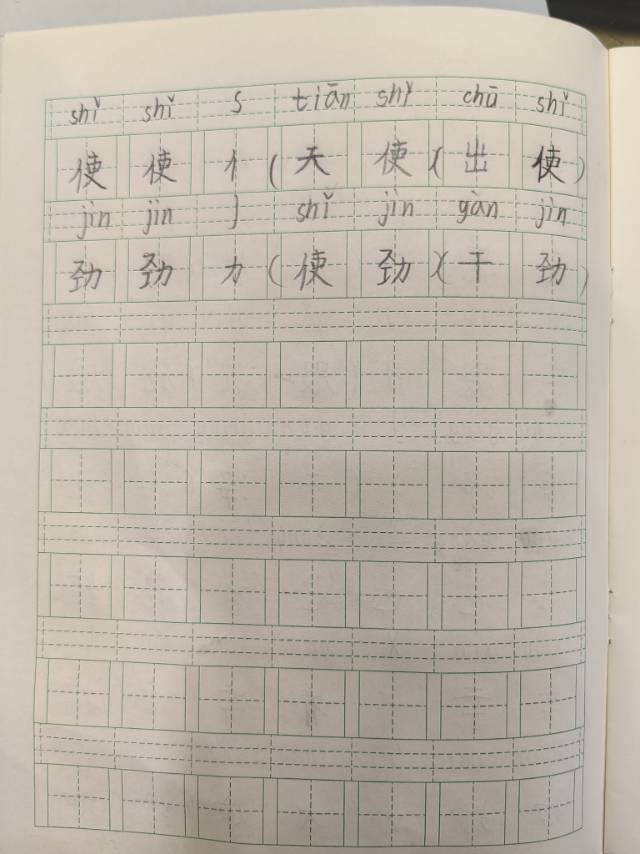 shǐ shǐ S tiān shǐ chū shǐ
使 使 亻 ( 天 使 ) ( 出 使 )
jìn jìn J shǐ jìn gàn jìn
劲 劲 力 ( 使 劲 ) ( 干 劲 )